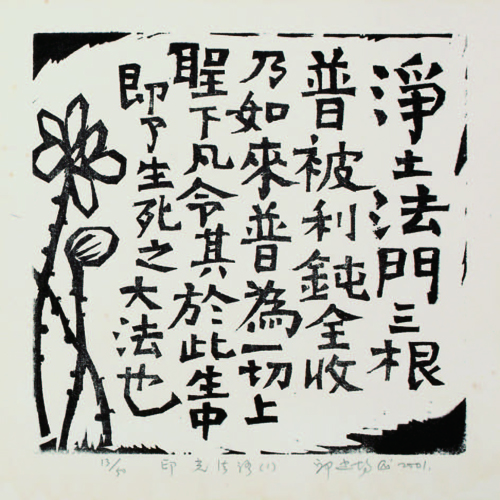 淨土法門三根
普被利鈍全收
乃如來普為一切上
聖下凡令其於此生中
即了生死之大法也
13/50 印光法語(1) 2001.